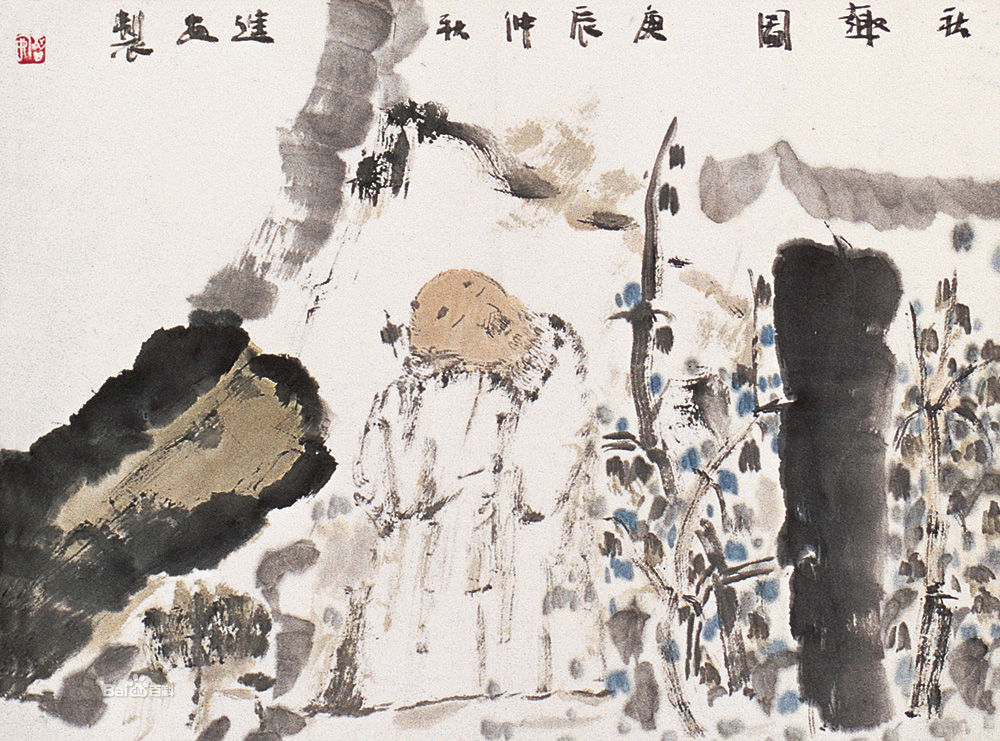 秋趣圖 庚辰仲秋 進安製
Baidu百科